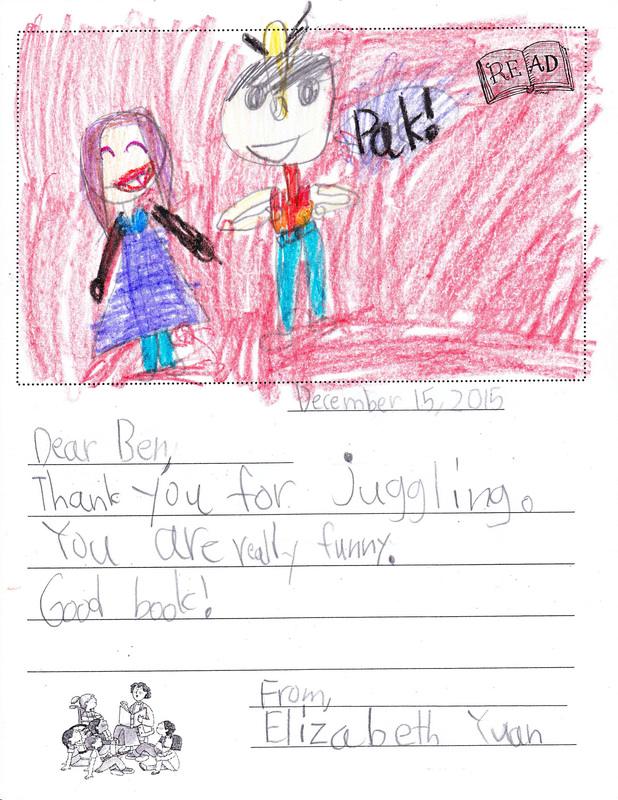 READ
Pak!
December 15, 2015
Dear Ben,
Thank you for juggling.
You are really funny.
Good book!
From,
Elizabeth Yuan